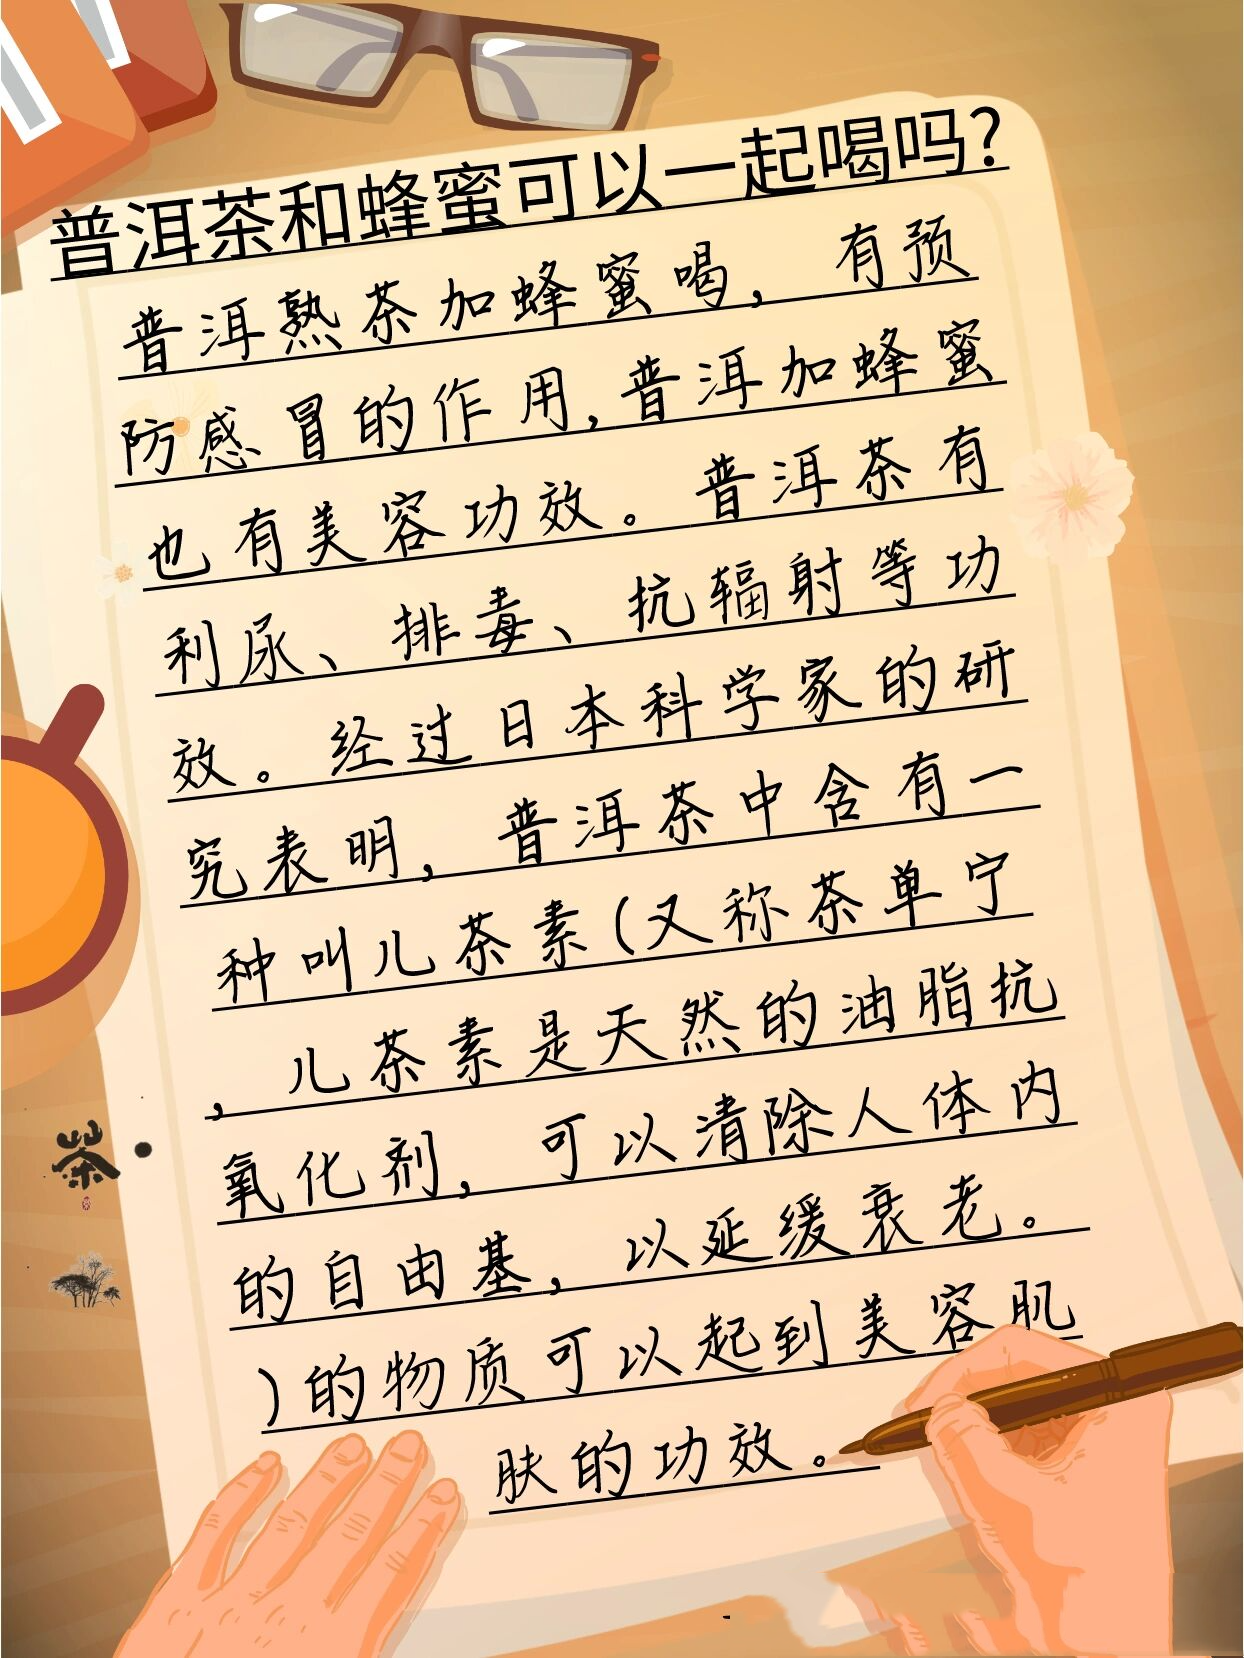 普洱茶和蜂蜜可以一起喝吗?
普洱熟茶加蜂蜜喝，有预
防感冒的作用,普洱加蜂蜜
也有美容功效。普洱茶有
利尿、排毒、抗辐射等功
效。经过日本科学家的研
究表明，普洱茶中含有一
种叫儿茶素(又称茶单宁
，儿茶素是天然的油脂抗
氧化剂，可以清除人体内
的自由基，以延缓衰老。
)的物质可以起到美容肌
肤的功效。
茶